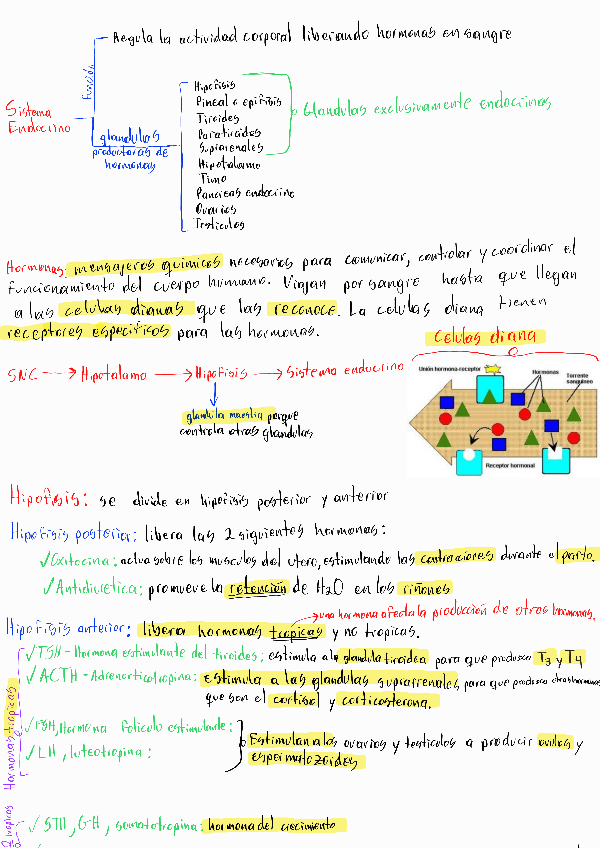 Regula la actividad corporal liberando hormonas en sangre
Función
Sistema
Endocrino
glandulas
productoras de
hormonas
Hipofisis
Pineal o epifisis
Tiroides
Paratiroides
Suprarrenales
Hipotalamo
Timo
Pancreas endocrino
Ovarios
Testiculos
Glandulas exclusivamente endocrinas
Hormonas: mensajeros quimicos necesarios para comunicar, controlar y coordinar el
funcionamiento del cuerpo humano. Viajan por sangre hasta que llegan
a las celulas dianas que las reconoce. La celulas diana tienen
receptores especificos para las hormonas.
Celulas diana
SNC → Hipotalamo → Hipofisis → Sistema endocrino
glandula maestra porque
controla otras glandulas
Unión hormona-receptor
Hormonas
Torrente
sanguíneo
Receptor hormonal
Hipofisis: se divide en hipofisis posterior y anterior
Hipofisis posterior: libera las 2 siguientes hormonas:
✓Oxitocina: actua sobre los musculos del utero, estimulando las contracciones durante el parto.
✓Antidiuretica: promueve la retención de H2O en los riñones
una hormona afecta la producción de otras hormonas.
Hipofisis anterior: libera hormonas tropicas y no tropicas.
Hormonas tropicas
✓TSH - Hormona estimulante del tiroides: estimula a la glandula tiroidea para que produzca T3 y T4
✓ACTH - Adrenorticotropina: estimula a las glandulas suprarrenales para que produzca
que son el cortisol y corticosterona.
✓FSH, Hormona foliculo estimulante:
✓LH, luteotropina:
Estimulan a los ovarios y testiculos a producir ovulos y
espermatozoides
tropicas
✓STH, GH, somatotropina: hormona del crecimiento